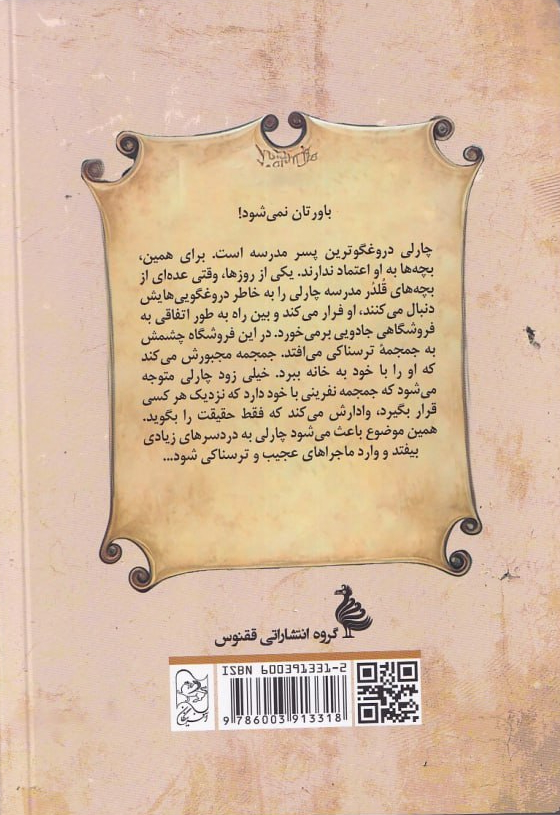 باورتان نمی‌شود!
چارلی دروغگوترین پسر مدرسه است. برای همین،
بچه‌ها به او اعتماد ندارند. یکی از روزها، وقتی عده‌ای از
بچه‌های قُلدُر مدرسه چارلی را به خاطر دروغگویی‌هایش
دنبال می‌کنند، او فرار می‌کند و بین راه به طور اتفاقی به
فروشگاهی جادویی برمی‌خورد. در این فروشگاه چشمش
به جمجمهٔ ترسناکی می‌افتد. جمجمه مجبورش می‌کند
که او را با خود به خانه ببرد. خیلی زود چارلی متوجه
می‌شود که جمجمه نفرینی با خود دارد که نزدیک هر کسی
قرار بگیرد، وادارش می‌کند که فقط حقیقت را بگوید.
همین موضوع باعث می‌شود چارلی به دردسرهای زیادی
بیفتد و وارد ماجراهای عجیب و ترسناکی شود...
گروه انتشاراتی ققنوس
ISBN 600391331-2
9 786003 913318